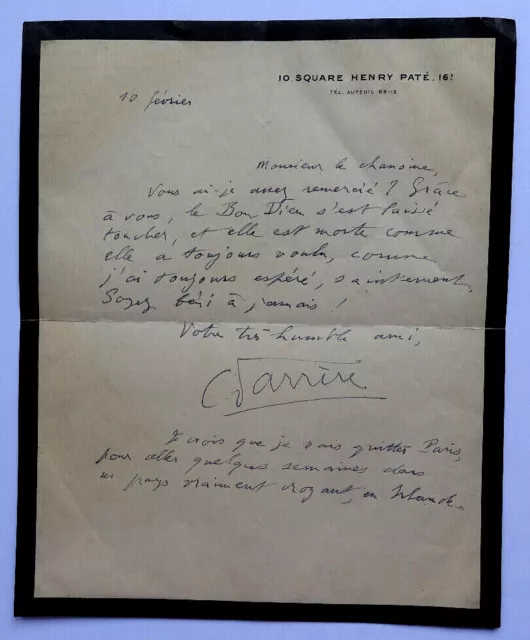 10 SQUARE HENRY PATÉ. 16ᵉ
TÉL. AUTEUIL 69-12
10 février
Monsieur le chanoine,
Vous ai-je assez remercié ? Grâce
à vous, le Bon Dieu s'est laissé
toucher, et elle est morte comme
elle a toujours voulu, comme
j'ai toujours espéré, saintement.
Soyez béni à jamais !
Votre très humble ami,
Farrère
Je crois que je vais quitter Paris,
pour aller quelques semaines dans
un pays vraiment croyant, en Irlande.